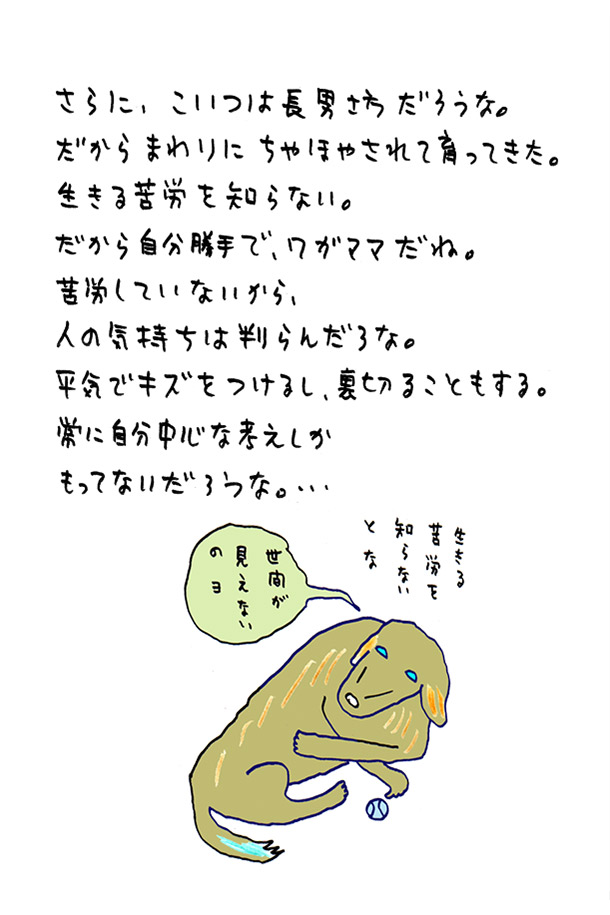 さらに、こいつは長男坊だろうな。
だからまわりにちゃほやされて育ってきた。
生きる苦労を知らない。
だから自分勝手で、ワガママだね。
苦労していないから、
人の気持ちは判らんだろな。
平気でキズをつけるし、裏切ることもする。
常に自分中心な考えしか
もってないだろうな。・・・
生きる
苦労を
知らない
とな
世間が
見えない
のヨ